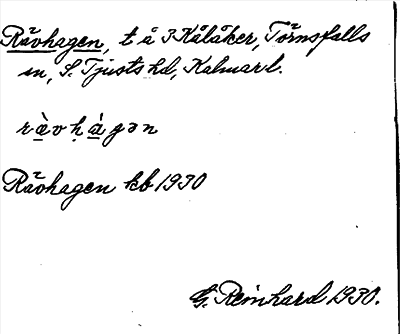 Rävhagen, t å 3 Kålåker, Törnsfalls
sn, S. Tjusts hd, Kalmar l.
ràvhágən
Rävhagen kb 1930
G. Reinhard 1930.